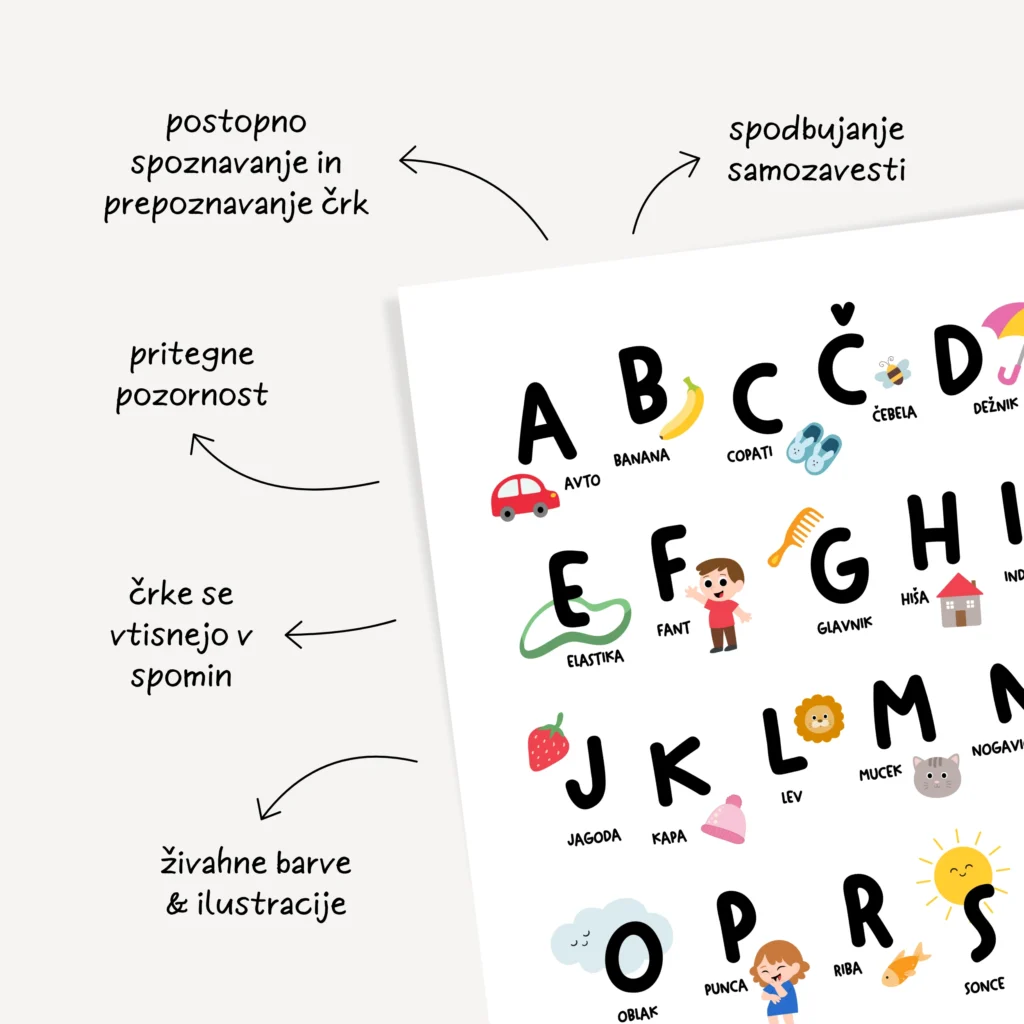 postopno
spoznavanje in
prepoznavanje črk
spodbujanje
samozavesti
pritegne
pozornost
črke se
vtisnejo v
spomin
živahne barve
& ilustracije
A B C Č D
AVTO BANANA COPATI ČEBELA DEŽNIK
E F G H I
ELASTIKA FANT GLAVNIK HIŠA
J K L M N
JAGODA KAPA LEV MUCEK
O P R S
OBLAK PUNCA RIBA SONCE